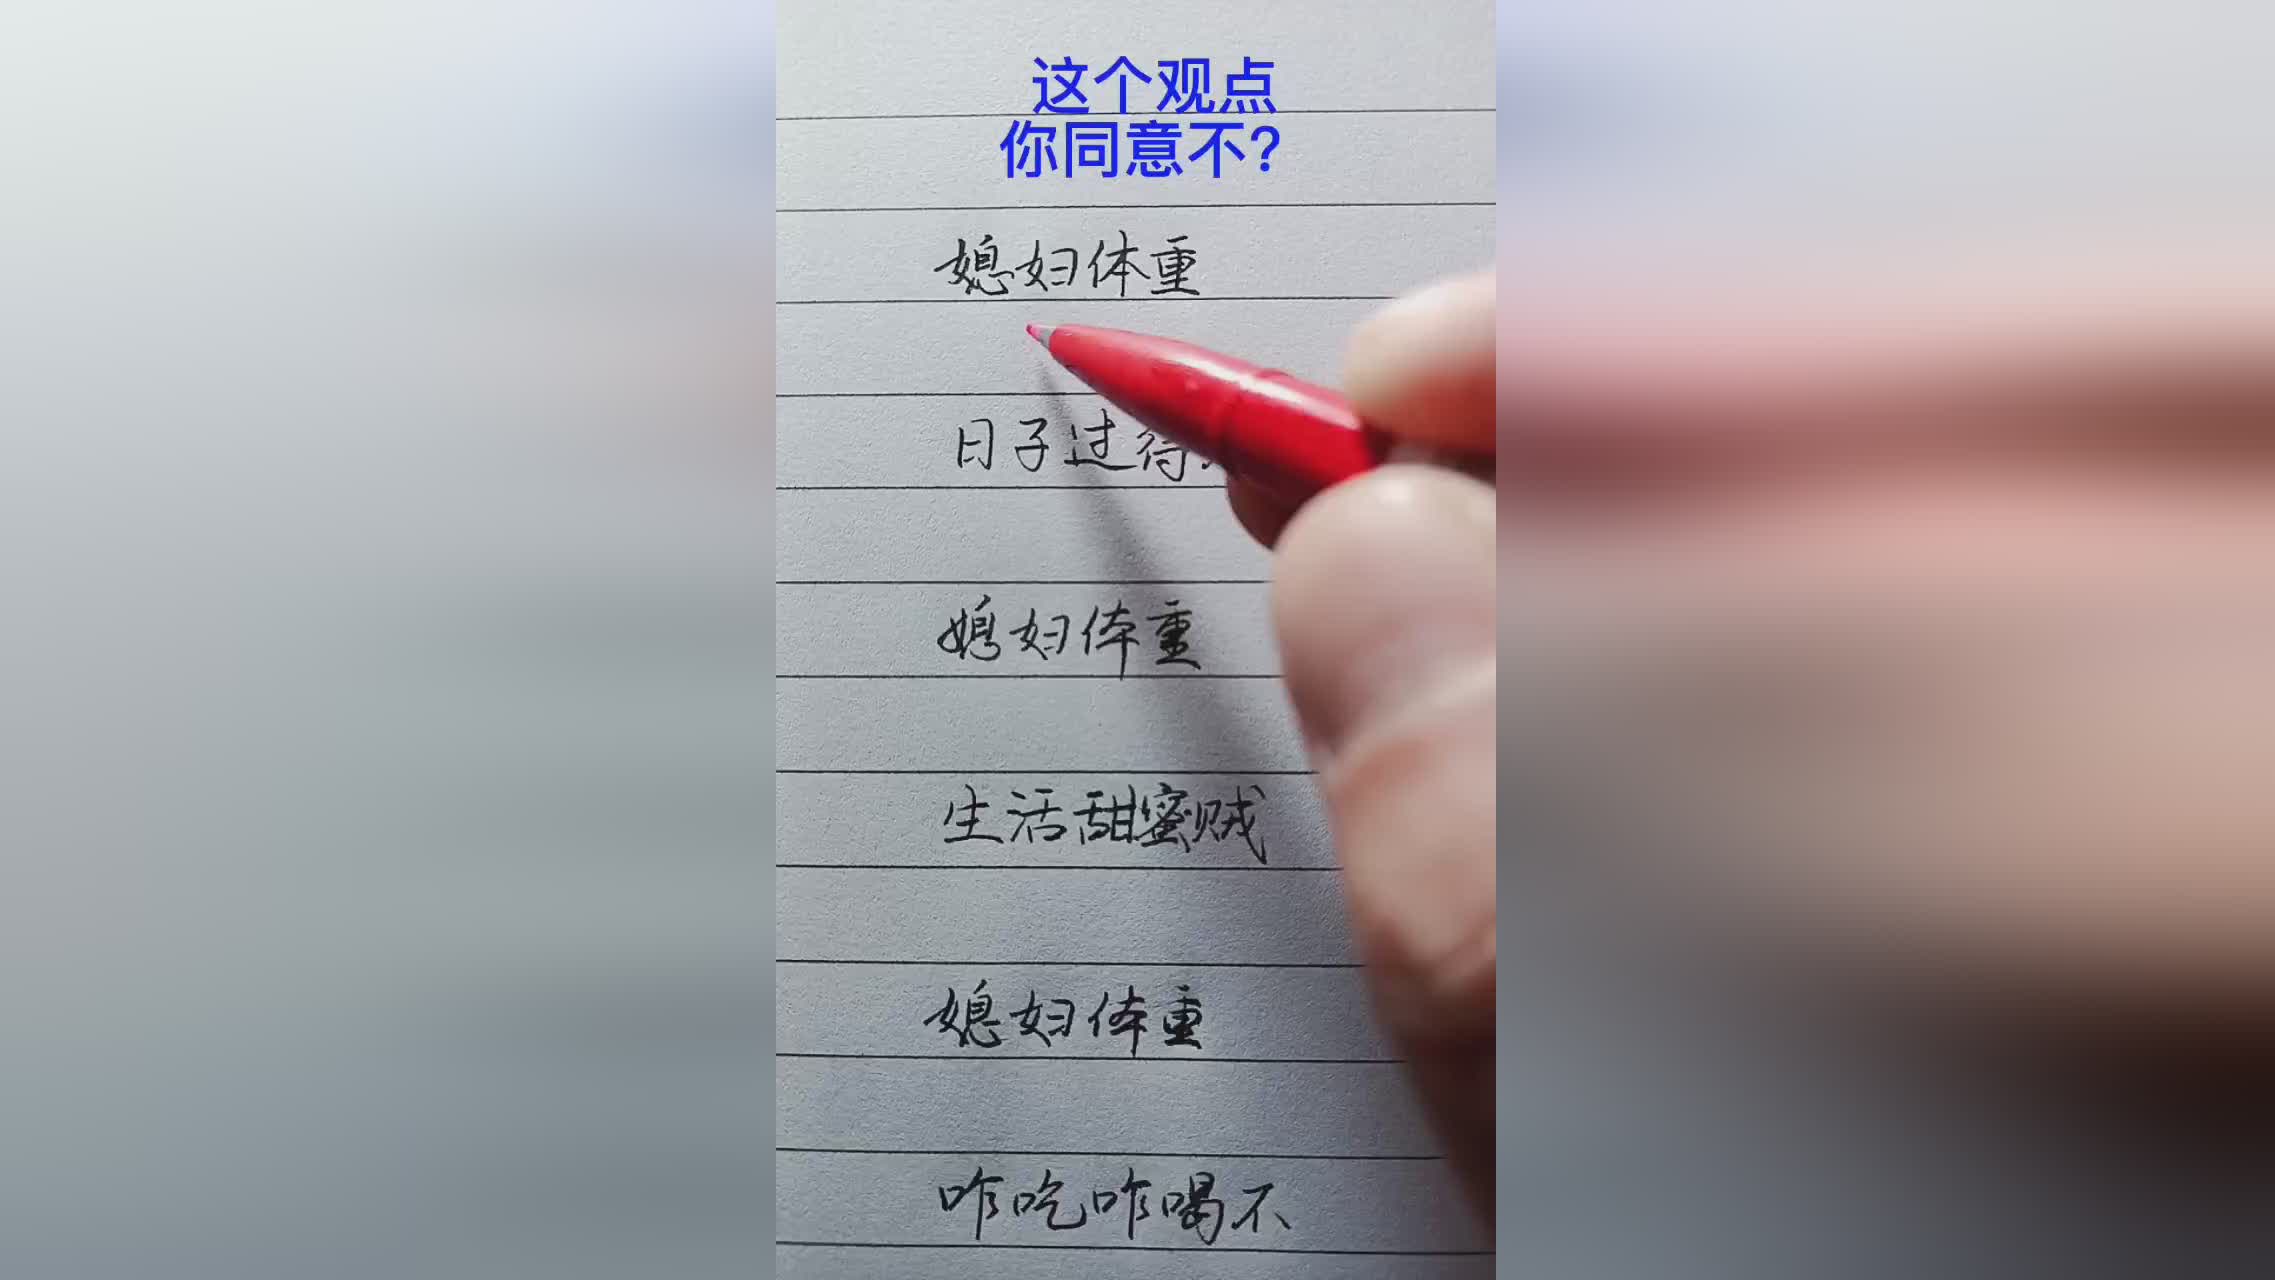 这个观点
你同意不?
媳妇体重
日子过得
媳妇体重
生活甜蜜贼
媳妇体重
咋吃咋喝不